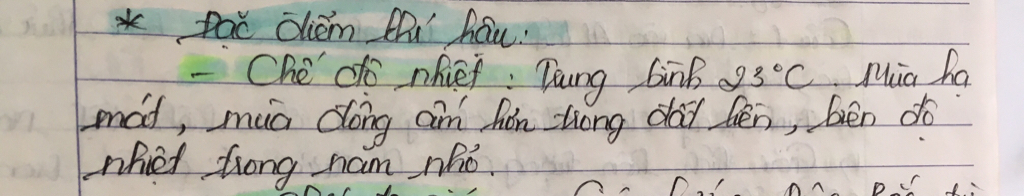 * Đặc điểm khí hậu:
- Chế độ nhiệt: Trung bình 23°C. Mùa hạ
mát, mùa đông ấm hơn trong đất liền, biên độ
nhiệt trong năm nhỏ.